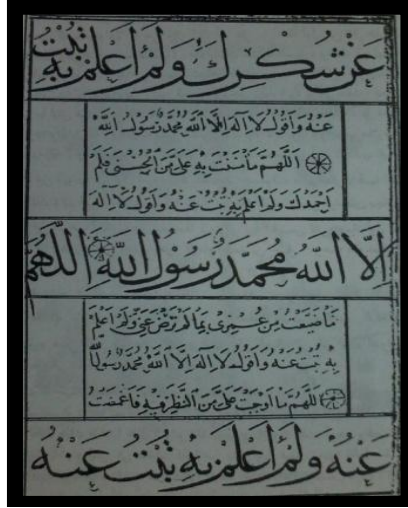 عَنْ شُكْرِكَ وَلَمْ اَعْلَمْ بِهٖ تُبْتُ
عَنْهُ وَاَقُوْلُ لَا اِلٰهَ اِلَّا اللّٰهُ مُحَمَّدٌ رَّسُوْلُ اللّٰهِ
اَللّٰهُمَّ مَا مَنَنْتَ بِهٖ عَلَىَّ مِنَ الْحُسْنٰى فَلَمْ
اَحْمَدْكَ وَلَمْ اَعْلَمْ بِهٖ تُبْتُ عَنْهُ وَاَقُوْلُ لَا اِلٰهَ
اِلَّا اللّٰهُ مُحَمَّدٌ رَّسُوْلُ اللّٰهِ اَللّٰهُمَّ
مَا ضَيَّعْتُ مِنْ عُمْرِىْ بِمَا لَمْ تَرْضَ عَنِّىْ وَلَمْ اَعْلَمْ
بِهٖ تُبْتُ عَنْهُ وَاَقُوْلُ لَا اِلٰهَ اِلَّا اللّٰهُ مُحَمَّدٌ رَّسُوْلُ اللّٰهِ
اَللّٰهُمَّ مَا اَوْجَبْتَ عَلَىَّ مِنَ النَّظَرِ فِيْهِ فَاغْمَضْتُ
عَنْهُ وَلَمْ اَعْلَمْ بِهٖ تُبْتُ عَنْهُ